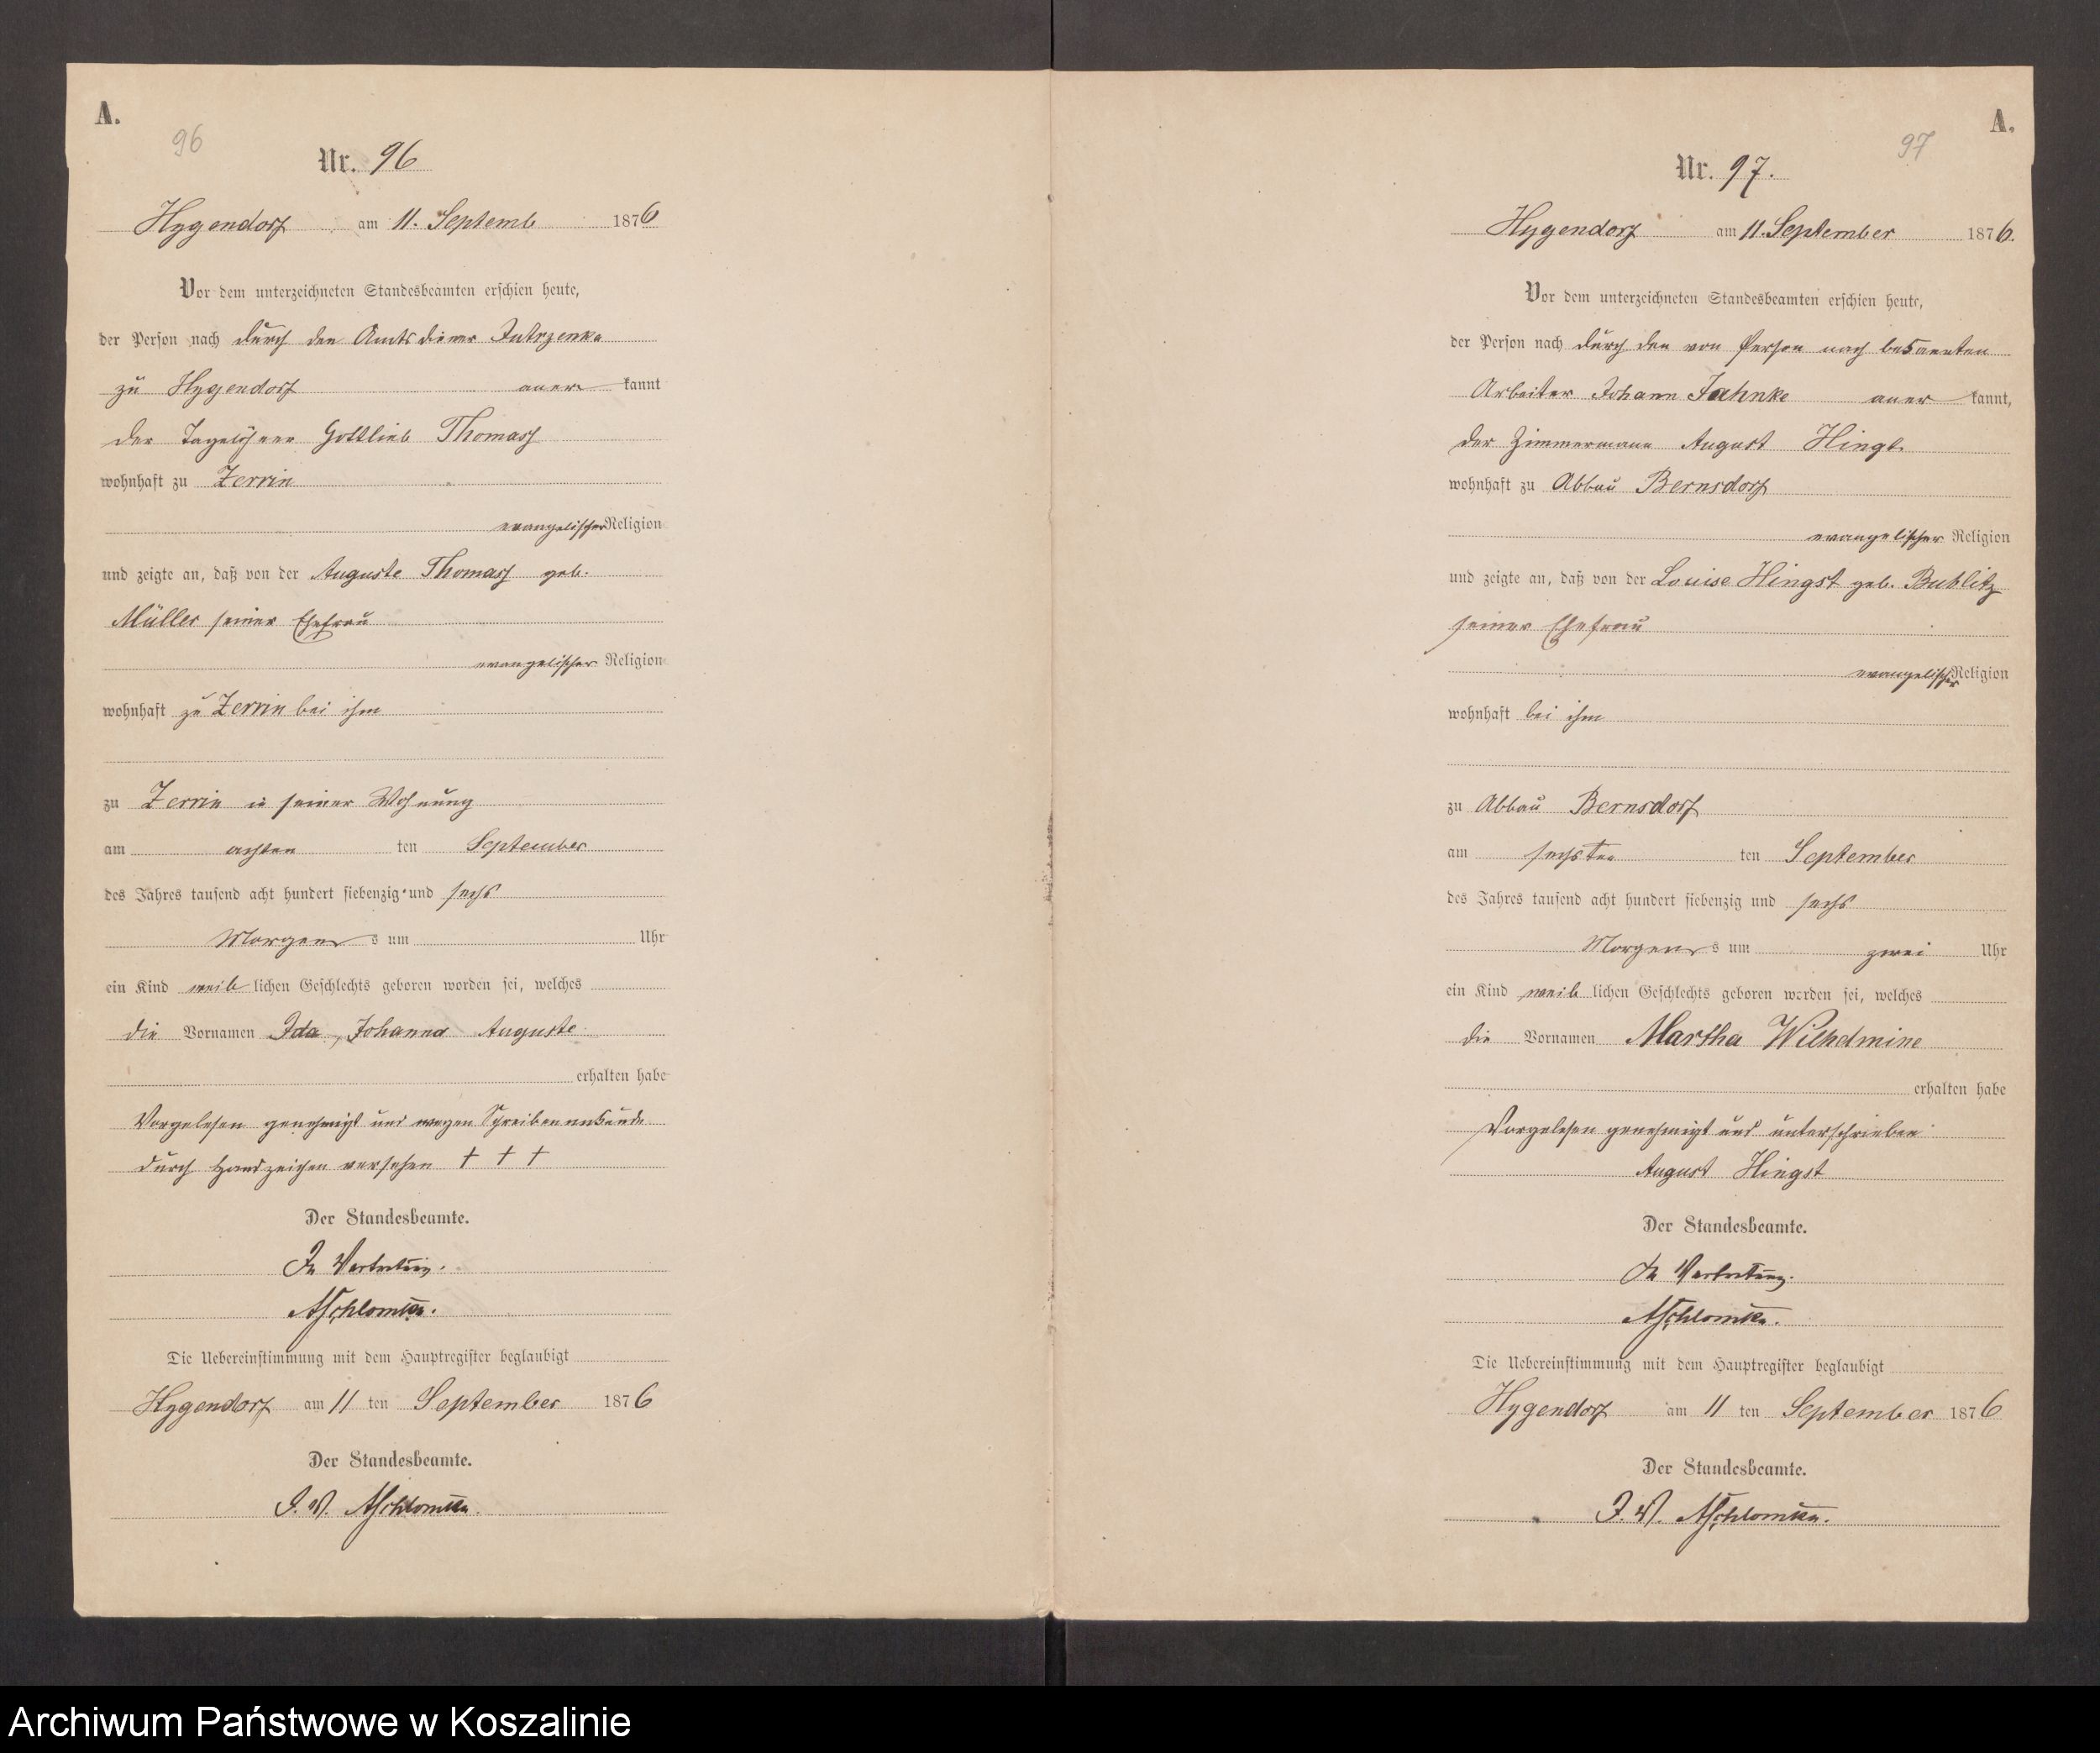 A.
96
Nr. 96
Hygendorf am 11. Septemb 1876
Vor dem unterzeichneten Standesbeamten erschien heute,
der Person nach durch den Amtsdiener Jutrzenka
zu Hygendorf aner kannt
der Tagelöhner Gottlieb Thomas
wohnhaft zu Zerrin
evangelischer Religion
und zeigte an, daß von der Auguste Thomas geb.
Müller seiner Ehefrau
evangelischer Religion
wohnhaft zu Zerrin bei ihm
zu Zerrin in seiner Wohnung
am achten ten September
des Jahres tausend acht hundert siebenzig und sechs
Morgens um Uhr
ein Kind weib lichen Geschlechts geboren worden sei, welches
die Vornamen Ida, Johanna Auguste
erhalten habe
Vorgelesen genehmigt und wegen Schreibenunkunde
durch Handzeichen versehen † † †
Der Standesbeamte.
In Vertretung.
Der Standesbeamte.
Die Uebereinstimmung mit dem Hauptregister beglaubigt
Hygendorf am 11 ten September 1876
Der Standesbeamte.
I. V.
A.
97
Nr. 97.
Hygendorf am 11. September 1876.
Vor dem unterzeichneten Standesbeamten erschien heute,
der Person nach durch den von Person nach bekannten
Arbeiter Johann Jahnke aner kannt,
der Zimmermann August Hingst
wohnhaft zu Abbau Bernsdorf
evangelischer Religion
und zeigte an, daß von der Louise Hingst geb. Bublitz
seiner Ehefrau
evangelischer Religion
wohnhaft bei ihm
zu Abbau Bernsdorf
am sechsten ten September
des Jahres tausend acht hundert siebenzig und sechs
Morgens um zwei Uhr
ein Kind weib lichen Geschlechts geboren worden sei, welches
die Vornamen Martha Wilhelmine
erhalten habe
Vorgelesen genehmigt und unterschrieben
August Hingst
Der Standesbeamte.
In Vertretung.
Die Uebereinstimmung mit dem Hauptregister beglaubigt
Hygendorf am 11 ten September 1876
Der Standesbeamte.
I. V.
Archiwum Państwowe w Koszalinie